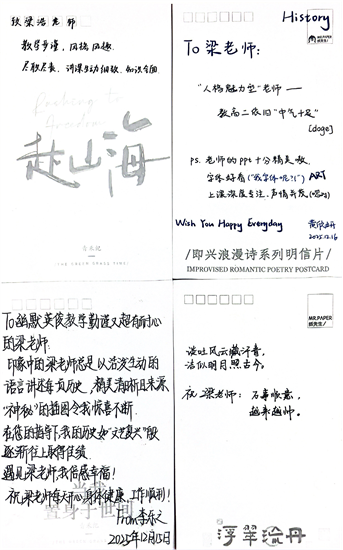 致梁浩老师
教学严谨，风趣风趣，
尽职尽责，讲课生动细致，知识全面
Rushing to
赴山海
古木记
History
MR.PAPER
纸先生/
To 梁老师：
“人格魅力型”老师——
教高二依旧“中气十足”
[doge]
ps. 老师的ppt十分精美哦，
字体好看（“我字体呢？！”）ART
上课深度专注，声情并茂（嘿嘿）
Wish You Happy Everyday
2025.12.16
/即兴浪漫诗系列明信片/
IMPROVISED ROMANTIC POETRY POSTCARD
To 幽默英俊教学勤谨又超有耐心
的梁老师
印象中的梁老师总是以活泼生动的
语言讲述每页历史，精美清晰且来源
“神秘”的插图令我惊喜不断
在您的指导下我的历史如“文艺复兴”般
逐渐往上取得佳绩
遇见梁老师我倍感幸福！
祝梁老师每天开心身体健康，工作顺利！
置身于世间
2025年12月15日
MR.PAPER
纸先生/
谈吐风云藏汗青，
洁似明月照古今。
祝梁老师：万事顺意，
越来越帅。
浮翠流丹